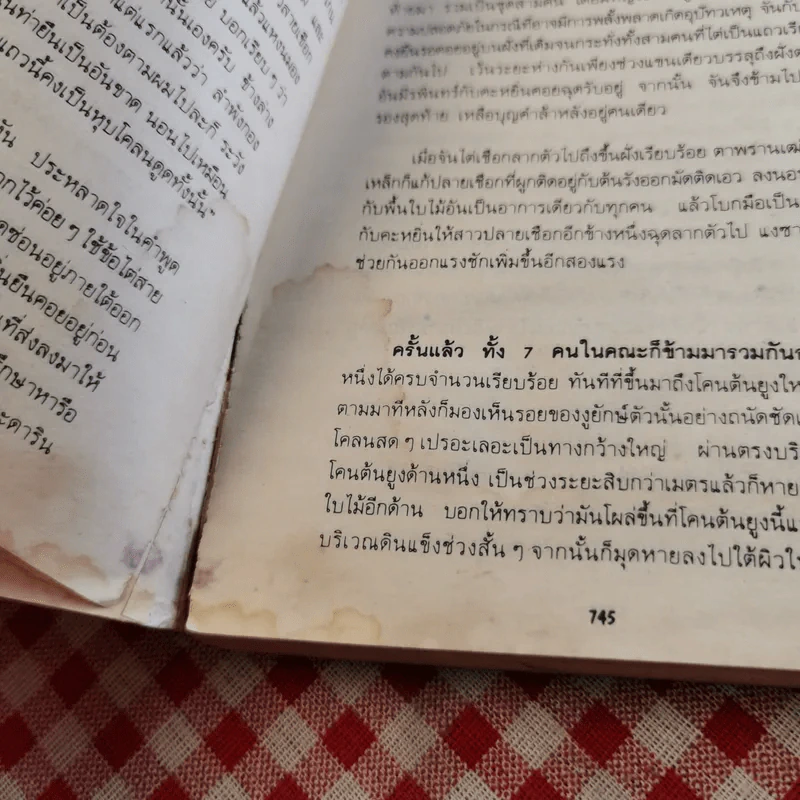 แต่แรกแล้วว่า ลำพังกอง
นั้นเองครับ ช้างล่าง
บอกเรียบๆ ว่า
แล้วแหงนมอง
นท่ายืนเป็นอันขาด นอนไปเหมือน
เป็นต้องตามผมไปละก็ ระวัง
แถวนี้คงเป็นทุบโคลนดูดทั้งนั้น"
ประหลาดใจในคำพูด
กไว้ค่อยๆ ใช้ข้อไต่สาย
ดซ่อนอยู่ภายใต้ออก
ยืนคอยอยู่ก่อน
ที่ส่งลงมาให้
รึกษาหารือ
ะดาริน
ท้ายมา รวมเป็นชุดสามคน
ความปลอดภัยในกรณีที่อาจมีการพลั้งพลาดเกิดอุบัทวเหตุ จันก็
คงยืนรอคอยอยู่บนฝั่งที่เดิมจนกระทั่งทั้งสามคนที่ไต่เป็นแถวเรีย
ตามกันไป เว้นระยะห่างกันเพียงช่วงแขนเดียวบรรลุถึงฝั่งต
อันมีรพินทร์กับคะหยิ่นคอยฉุดรับอยู่ จากนั้น จันจึงข้ามไป
รองสุดท้าย เหลือบุญคำล้าหลังอยู่คนเดียว
เมื่อจันไต่เชือกลากตัวไปถึงขึ้นฝั่งเรียบร้อย ตาพรานเฒ่
เหล็กก็แก้ปลายเชือกที่ผูกติดอยู่กับต้นรังออกมัดติดเอว ลงนอน
กับพื้นใบไม้อันเป็นอาการเดียวกับทุกคน แล้วโบกมือเป็น
กับคะหยิ่นให้สาวปลายเชือกอีกข้างหนึ่งฉุดลากตัวไป แงซา
ช่วยกันออกแรงชักเพิ่มขึ้นอีกสองแรง
ครั้นแล้ว ทั้ง 7 คนในคณะก็ข้ามมารวมกัน
หนึ่งได้ครบจำนวนเรียบร้อย ทันทีที่ขึ้นมาถึงโคนต้นยูงให
ตามมาทีหลังก็มองเห็นรอยของงูยักษ์ตัวนั้นอย่างถนัดชัดเ
โคลนสดๆ เปรอะเลอะเป็นทางกว้างใหญ่ ผ่านตรงบริ
โคนต้นยูงด้านหนึ่ง เป็นช่วงระยะสิบกว่าเมตรแล้วก็หาย
ใบไม้อีกด้าน บอกให้ทราบว่ามันโผล่ขึ้นที่โคนต้นยูงนี้แ
บริเวณดินแข็งช่วงสั้นๆ จากนั้นก็มุดหายลงไปใต้ผิวใ
745